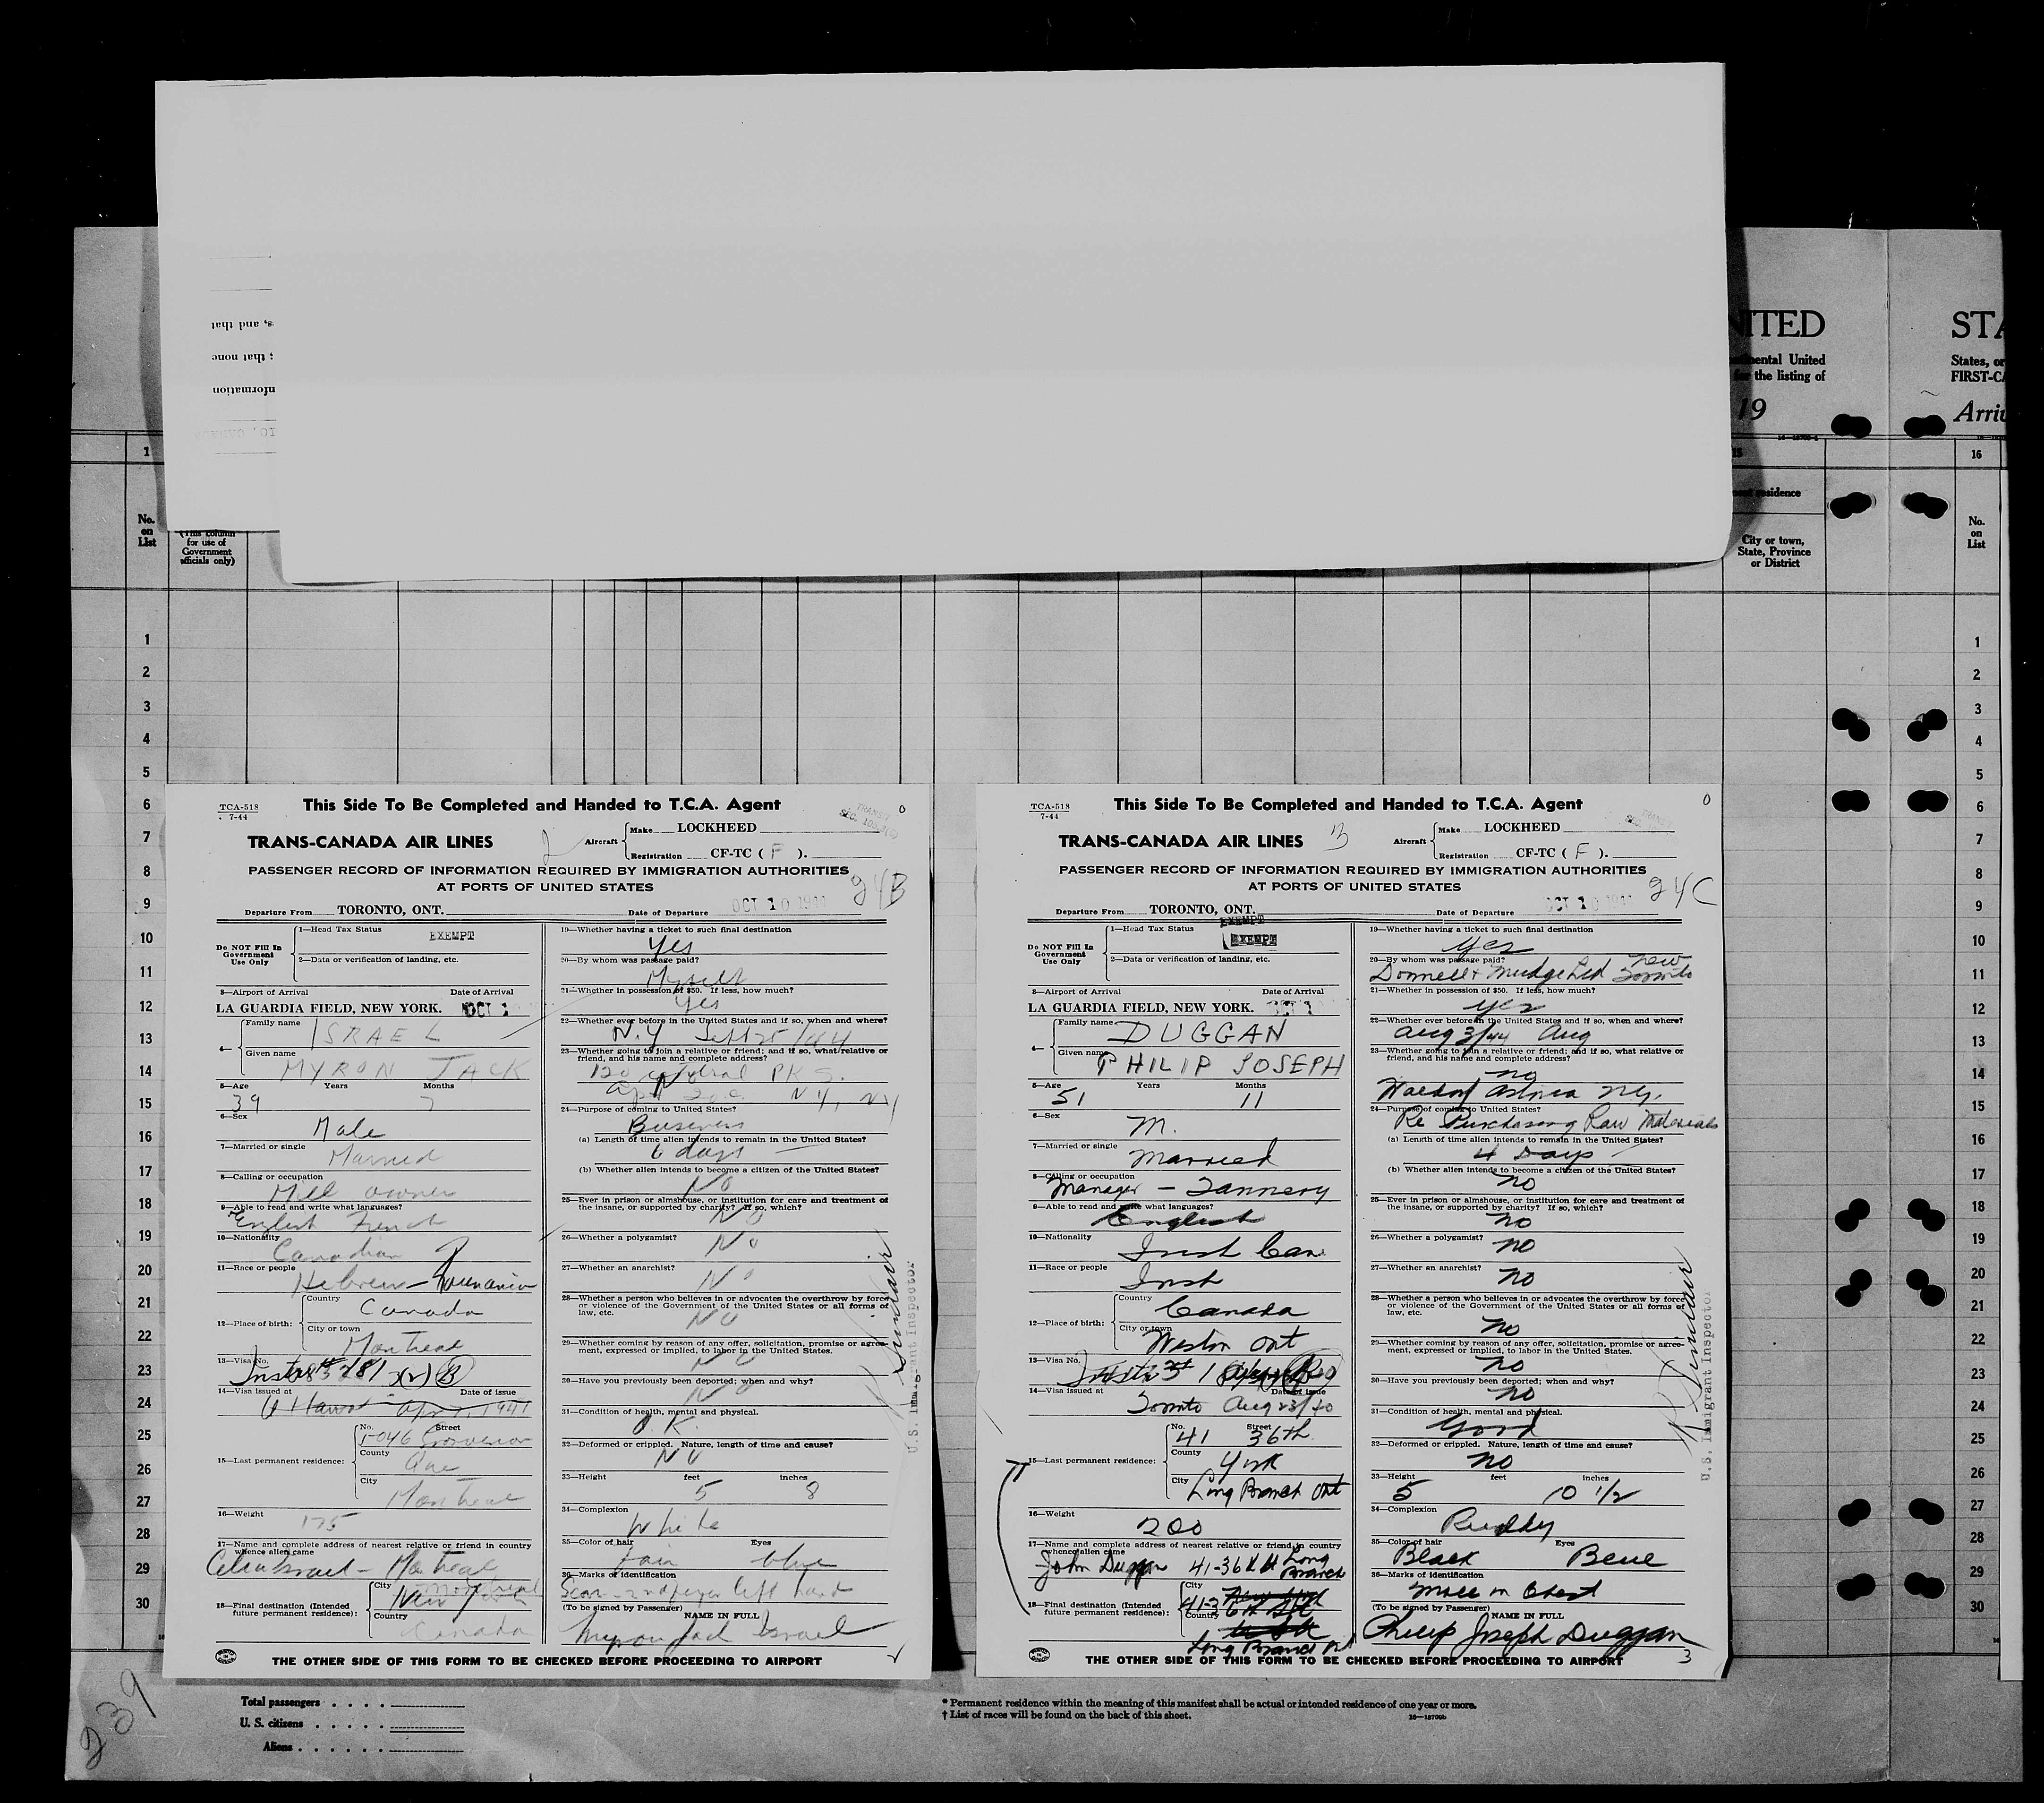 s, and that
; that none
nformation
NITED
STA
nental United
for the listing of
19
States, or
FIRST-CA
Arriv
1
15
16
No.
on
List
(This column
for use of
Government
officials only)
residence
City or town,
State, Province
or District
No.
on
List
1
2
3
4
5
6
7
8
9
10
11
12
13
14
15
16
17
18
19
20
21
22
23
24
25
26
27
28
29
30
TCA-518
7-44
This Side To Be Completed and Handed to T.C.A. Agent
TRANS-CANADA AIR LINES
2
Aircraft
Make LOCKHEED
Registration CF-TC ( F ).
PASSENGER RECORD OF INFORMATION REQUIRED BY IMMIGRATION AUTHORITIES
AT PORTS OF UNITED STATES
24B
Departure From TORONTO, ONT.
Date of Departure OCT 10
Do NOT Fill In
Government
Use Only
1—Head Tax Status EXEMPT
2—Data or verification of landing, etc.
3—Airport of Arrival Date of Arrival
LA GUARDIA FIELD, NEW YORK. OCT 1
4— Family name ISRAEL
Given name MYRON JACK
5—Age Years Months
39 7
6—Sex Male
7—Married or single
Married
8—Calling or occupation
Mill owner
9—Able to read and write what languages?
English French
10—Nationality
Canadian
11—Race or people
Hebrew - Roumanian
12—Place of birth:
Country
Canada
City or town
Montreal
13—Visa No.
14—Visa issued at Date of issue
15—Last permanent residence:
No. Street
5046 Grosvenor
County
Que
City
Montreal
16—Weight
175
17—Name and complete address of nearest relative or friend in country
whence alien came
Celia Israel - Montreal
18—Final destination (Intended
future permanent residence):
City
Montreal
New York
Country
Canada
19—Whether having a ticket to such final destination
Yes
20—By whom was passage paid?
Myself
21—Whether in possession of $50. If less, how much?
Yes
22—Whether ever before in the United States and if so, when and where?
N.Y Sept 25/44
23—Whether going to join a relative or friend; and if so, what relative or
friend, and his name and complete address?
No
120 Central PK S.
NY, NY
24—Purpose of coming to United States?
Business
(a) Length of time alien intends to remain in the United States?
6 days
(b) Whether alien intends to become a citizen of the United States?
No
25—Ever in prison or almshouse, or institution for care and treatment of
the insane, or supported by charity? If so, which?
No
26—Whether a polygamist?
No
27—Whether an anarchist?
No
28—Whether a person who believes in or advocates the overthrow by force
or violence of the Government of the United States or all forms of
law, etc.
NO
29—Whether coming by reason of any offer, solicitation, promise or agree-
ment, expressed or implied, to labor in the United States.
NO
30—Have you previously been deported; when and why?
No
31—Condition of health, mental and physical.
O.K.
32—Deformed or crippled. Nature, length of time and cause?
NO
33—Height feet inches
5 8
34—Complexion
White
35—Color of hair Eyes
Fair blue
36—Marks of identification
Scar - 2nd finger left hand
(To be signed by Passenger) NAME IN FULL
Myron Jack Israel
U.S. Immigrant Inspector
THE OTHER SIDE OF THIS FORM TO BE CHECKED BEFORE PROCEEDING TO AIRPORT
TCA-518
7-44
This Side To Be Completed and Handed to T.C.A. Agent
TRANS-CANADA AIR LINES
3
Aircraft
Make LOCKHEED
Registration CF-TC ( F ).
PASSENGER RECORD OF INFORMATION REQUIRED BY IMMIGRATION AUTHORITIES
AT PORTS OF UNITED STATES
24C
Departure From TORONTO, ONT.
Date of Departure OCT 10
Do NOT Fill In
Government
Use Only
1—Head Tax Status EXEMPT
EXEMPT
2—Data or verification of landing, etc.
3—Airport of Arrival Date of Arrival
LA GUARDIA FIELD, NEW YORK. OCT 1
4— Family name DUGGAN
Given name PHILIP JOSEPH
5—Age Years Months
51 11
6—Sex M.
7—Married or single
Married
8—Calling or occupation
Manager - Tannery
9—Able to read and write what languages?
English
10—Nationality
Irish Can.
11—Race or people
Irish
12—Place of birth:
Country
Canada
City or town
Weston Ont
13—Visa No.
14—Visa issued at Date of issue
Toronto Aug 23/40
15—Last permanent residence:
No. Street
41 36th.
County
York
City
Long Branch Ont
16—Weight
200
17—Name and complete address of nearest relative or friend in country
whence alien came
John Duggan 41-36th St Long
Branch
18—Final destination (Intended
future permanent residence):
City
Country
Long Branch Ont
19—Whether having a ticket to such final destination
Yes
20—By whom was passage paid?
Donnell & Mudge Ltd New
Toronto
21—Whether in possession of $50. If less, how much?
yes
22—Whether ever before in the United States and if so, when and where?
Aug 3/44 Aug
23—Whether going to join a relative or friend; and if so, what relative or
friend, and his name and complete address?
no
Waldorf Astoria N.Y.
24—Purpose of coming to United States?
Re Purchasing Raw Materials
(a) Length of time alien intends to remain in the United States?
4 Days
(b) Whether alien intends to become a citizen of the United States?
no
25—Ever in prison or almshouse, or institution for care and treatment of
the insane, or supported by charity? If so, which?
no
26—Whether a polygamist?
no
27—Whether an anarchist?
no
28—Whether a person who believes in or advocates the overthrow by force
or violence of the Government of the United States or all forms of
law, etc.
no
29—Whether coming by reason of any offer, solicitation, promise or agree-
ment, expressed or implied, to labor in the United States.
no
30—Have you previously been deported; when and why?
no
31—Condition of health, mental and physical.
Good
32—Deformed or crippled. Nature, length of time and cause?
no
33—Height feet inches
5 10 1/2
34—Complexion
Ruddy
35—Color of hair Eyes
Black Blue
36—Marks of identification
Mole on Chest
(To be signed by Passenger) NAME IN FULL
Philip Joseph Duggan
U.S. Immigrant Inspector
THE OTHER SIDE OF THIS FORM TO BE CHECKED BEFORE PROCEEDING TO AIRPORT
3
1
2
3
4
5
6
7
8
9
10
11
12
13
14
15
16
17
18
19
20
21
22
23
24
25
26
27
28
29
30
239
Total passengers
U. S. citizens
Aliens
* Permanent residence within the meaning of this manifest shall be actual or intended residence of one year or more.
† List of races will be found on the back of this sheet.